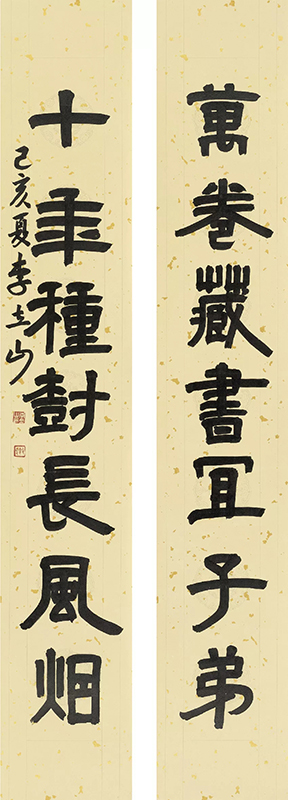 萬卷藏書宜子弟
十年種樹長風烟
己亥夏李立山